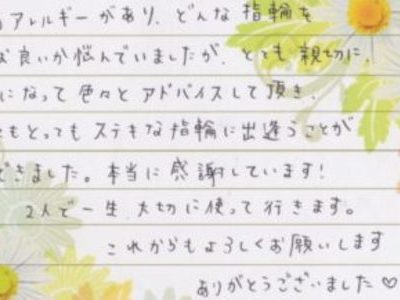 アレルギーがあり、どんな指輪を
良いか悩んでいましたが、とても親切に、
になって色々とアドバイスして頂き、
もとってもステキな指輪に出逢うことが
できました。本当に感謝しています!
2人で一生大切に使って行きます。
これからもよろしくお願いします
ありがとうございました♡